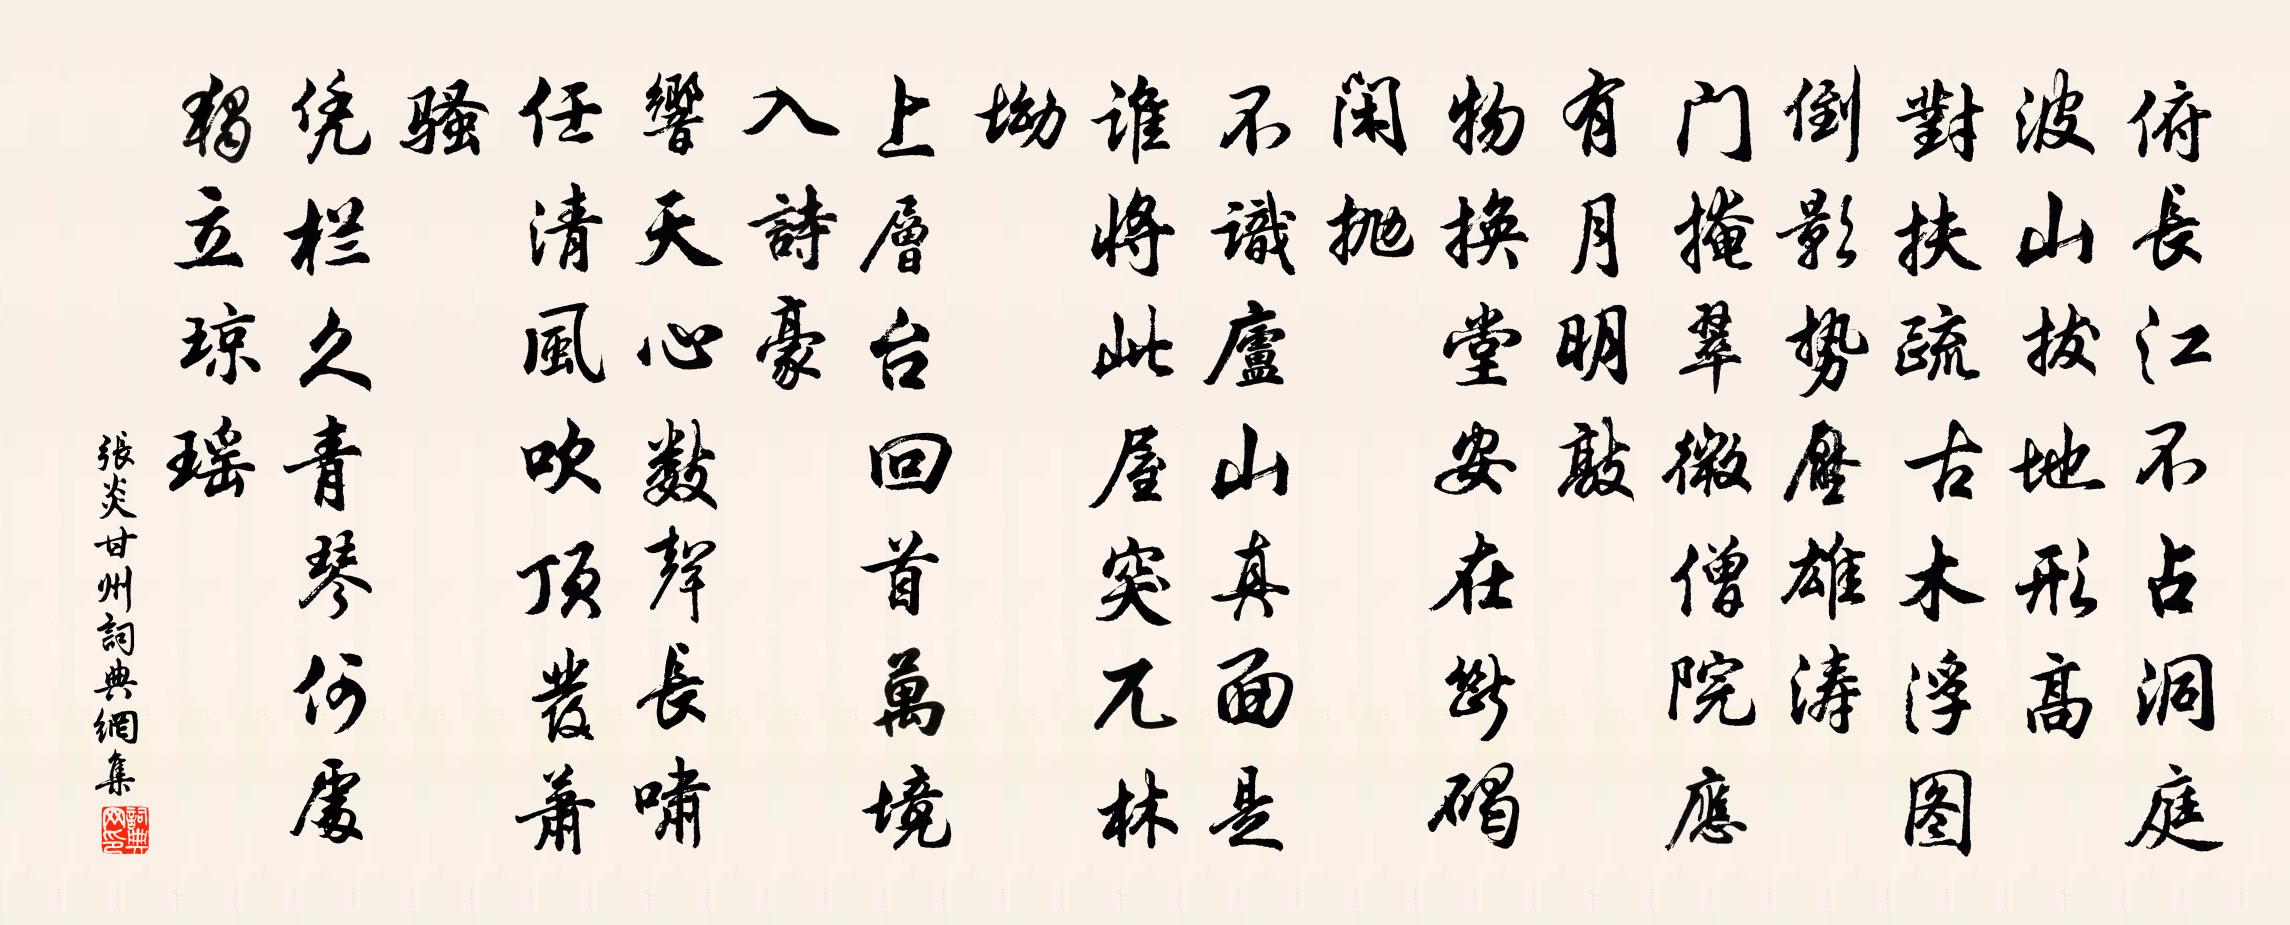 俯長江不占洞庭
波山拔地形高
對扶疏古木浮图
倒影势壓雄涛
门掩翠微僧院應
有月明敲
物换堂安在斷碣
闲抛
不識廬山真面是
谁將此屋突兀林
坳
上層台回首萬境
入詩豪
響天心數聲長嘯
任清風吹顶發蕭
騷
凭栏久青琴何處
獨立琼瑶
張炎甘州詞典網集
詞典網印